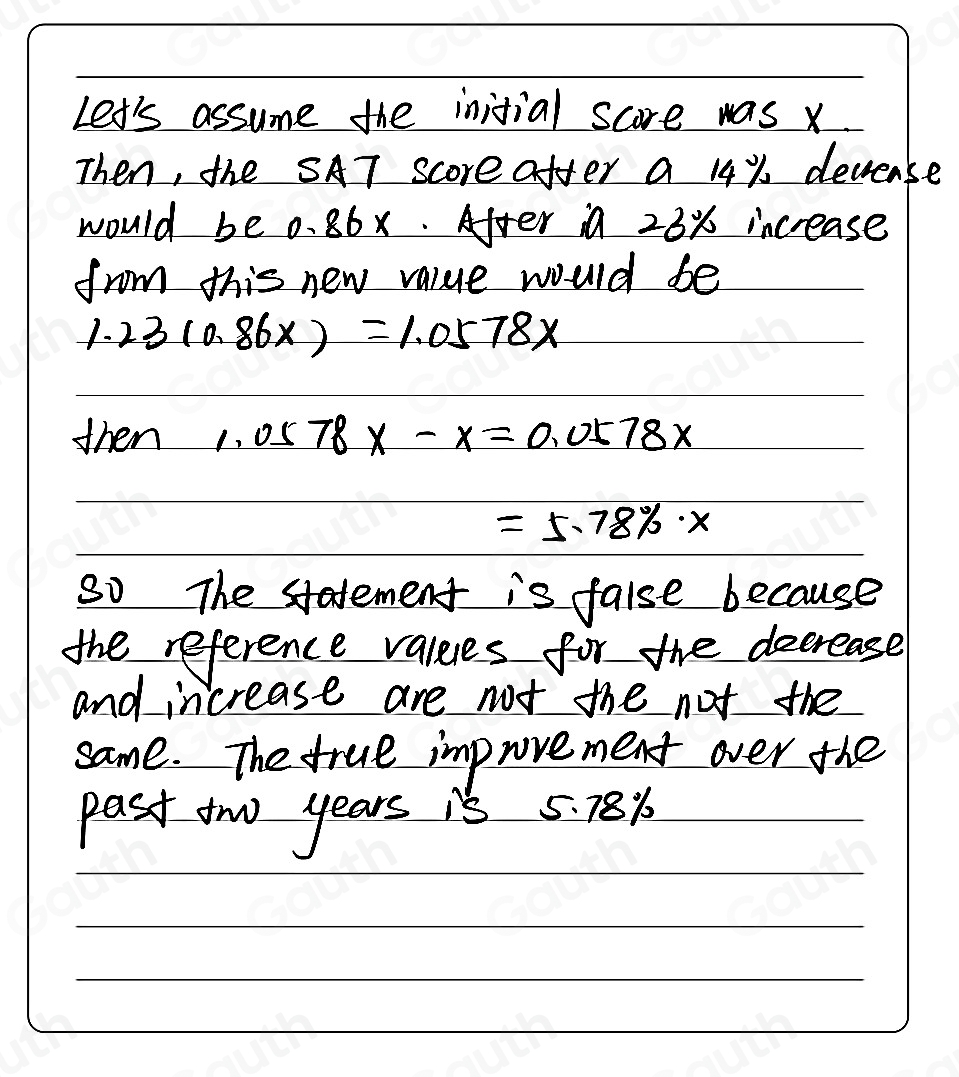 Let's assume the initial score was x.
Then, the SAT score after a 14% decrease
would be 0.86x. After a 23% increase
from this new value would be
1.23(0.86x) = 1.0578x
then 1.0578x - x = 0.0578x
= 5.78%·x
So The statement is false because
the reference values for the decrease
and increase are not the not the
same. The true improvement over the
past two years is 5.78%